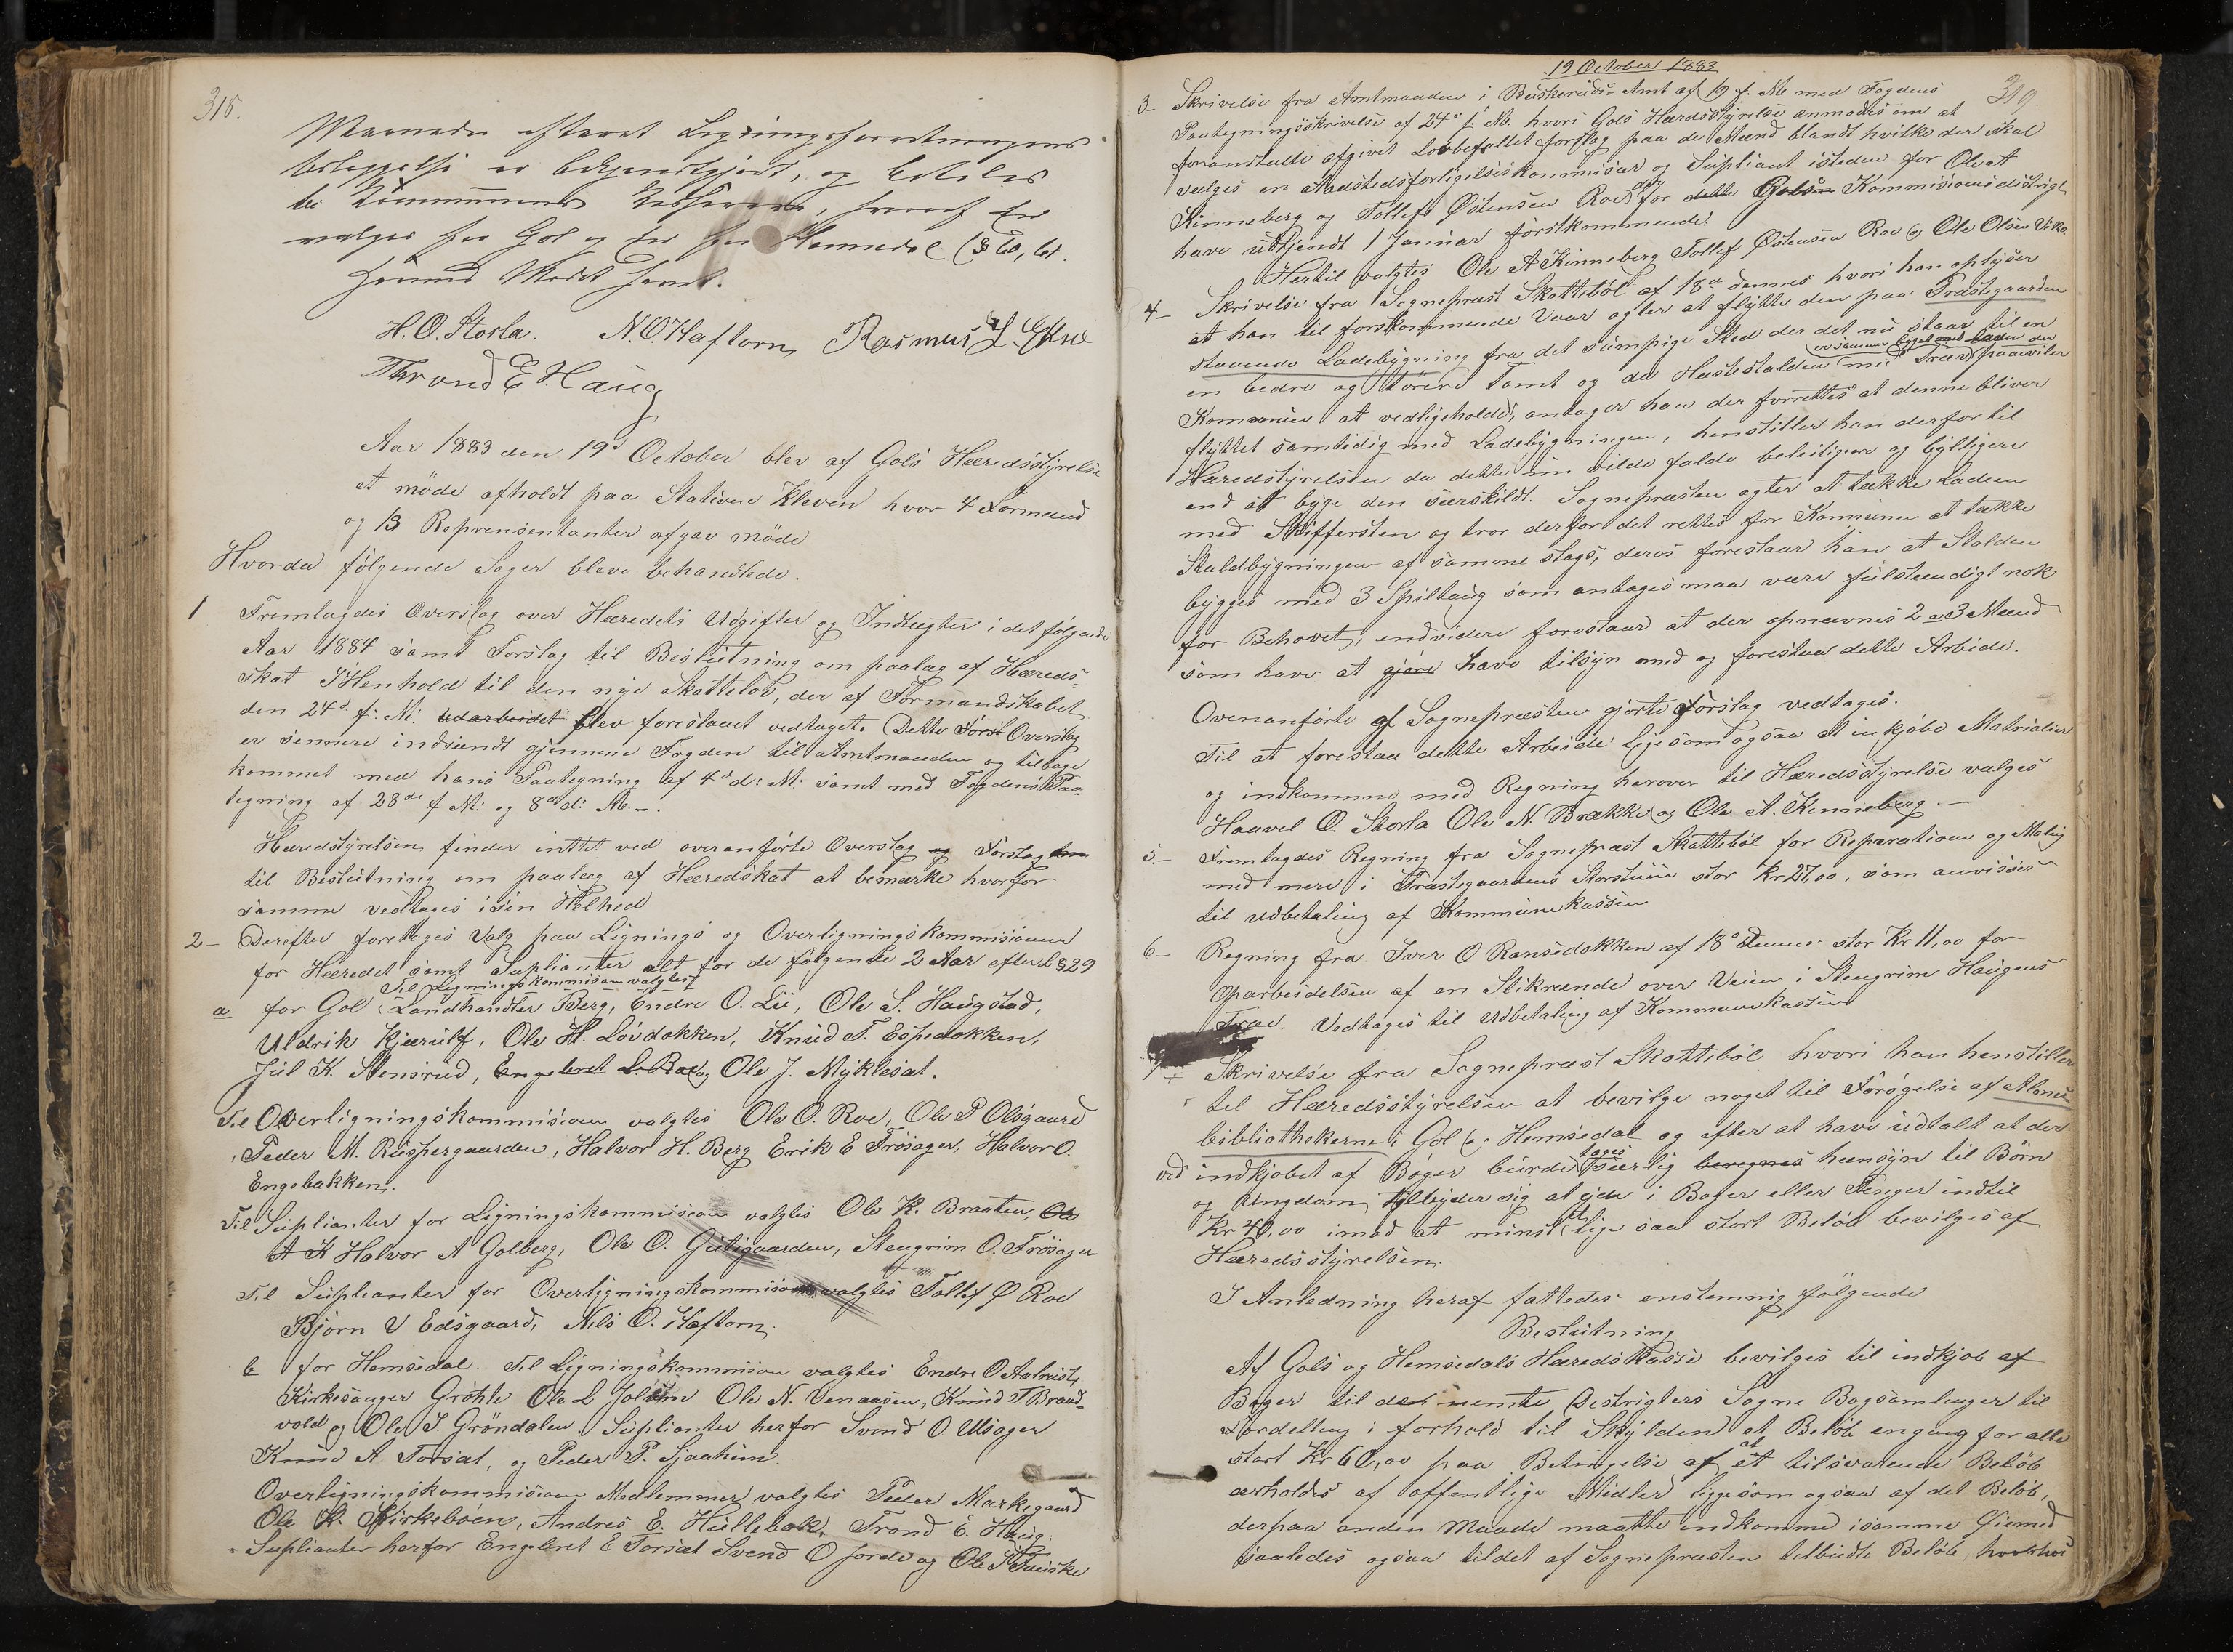 315.
Maaneder efterat Ligningsforretningens
Udleggelse er bekjendtgjort, og betales
til Kommunens Kasserere, hvoraf en
vælges for Gol og en for Hemsedal (§ 60, 61.
Hermed Mødet hævet.
H. O. Storla. N. O. Haftorn, Rasmus L.
Thrond E Haug
Aar 1883 den 19de October blev af Gols Heredsstyrelse
et møde afholdt paa Stationen Kleven hvor 4 Formænd
og 13 Reprensentanter afgav møde
Hvorda følgende Sager bleve behandlede.
1 Fremlagdes Overslag over Heredets Udgifter og Indtægter i det følgende
Aar 1884 samt Forslag til Beslutning om paalæg af Hereds-
skat I Henhold til den nye Skattelov, der af Formandskabet
den 24d. f. M: udarbeidet blev forestaaet vedtaget. Dette Først Overslag
er sennere indsendt gjennem Fogden til Amtmanden og tilbage
kommet med hans Paategning af 4d d: M: samt med Fogdens Paa-
tegning af 28de f M: og 8d d: M. -.
Heredstyrelsen finder inttet ved overanførte Overslag og Forslag
til Beslutning om paalæg af Heredskat at bemærke hvorfor
samme vedtages i sin Helhed
2 - Derefter foretages Valg paa Lignings og Overligningskommisionen
for Heredet samt Suplianter alt for de følgende 2 Aar efter L § 29
Til Ligningskommision valgtes
a for Gol Landhandler Berg, Endre O. Lii, Ole S. Haugstad,
Uldrik Kjærulf, Ole H. Løvdokken, Knud T. Espedokken,
Jul K. Stensrud, Engebret L. Roe, Ole J. Myklesat.
Til Overligningskommisionen valgtes Ole O. Roe, Ole P Olsgaard
Peder M. Ruspergaarden, Halvor H. Berg Erik E Frøsager, Halvor O.
Engebakken.
Til Suplianter for Ligningskommision valgtes Ole K. Braaten, Ole
A K Halvor A Golberg, Ole O. Gutigaarden, Stengrim O. Frøsager
Til Suplianter for Overligningskommision valgtes Tollef Ø Roe
Bjørn V Edsgaard, Nils O. Haftorn.
b for Hemsedal. Til Ligningskommision valgtes Endre O
Kirkesanger Grøthe Ole L Ole N. Venaasen, Knud T Brand-
vold og Ole S. Grøndalen, Suplianter herfor Svend O. Ulsager
Knud A Torsat, og Peder P. Sjaahim.
Overligningskommisions Medlemmer valgtes Peder Markegaard
Ole K. Kirkebøen, Andres E. Hullebak, Trond E. Haug.
Suplianter herfor Engebret E Torsat Svend O Jorde og Ole
19 October 1883
319
3 - Skrivelse fra Amtmanden i Buskeruds Amt af 19 f. M. med Fogdens
Paategningsskrivelse af 24de f. M. hvori Gols Heredsstyrelse anmodes om at
foranstalte afgivet Lovbefallet forslag paa de Mænd blandt hvilke der skal
vælges en Stedsforligelseskommisær og Supliant isteden for Ole A
Kinneberg og Tollef Østensen Roe for dette Golske Kommisionsdistrigt
have udtjendt 1 Januar førstkommende.
Hertil valgtes Ole A Kinneberg Tollef Østensen Roe og Ole Olsen
4 - Skrivelse fra Sognepræst Skattebøl af 18de dennes hvori han oplyser
at han til førstkommende Vaar agter at flytte den paa Præstegaarden
staaende Ladebygning fra det sumpige Sted der det nu staar til en
er sammen bygget med Laden der
en bedre og tørere Tomt og da Hestestalden paaviler
Kommunen at vedligeholde, antager han der forrettes at denne bliver
flyttet samtidig med Ladebygningen, henstiller han derfor til
Heredstyrelsen da dette vilde falde beleiligere og bylligere
end at byge den særskildt. Sognepræsten agter at tække Laden
med Skiffersten og tror derfor det rettes for Komunen at tække
Staldbygningen af samme slags, deros foreslaar han at Stalden
bygges med 3 Spiltaug som antages maa være fulstændigt nok
for Behovet, endvidere foreslaar at der opnævnes 2 a 3 Mænd
som have at gjøre have tilsyn med og forestaa dette Arbeide.
Ovenanførte af Sognepræsten gjorte forslag vedtages.
Til at forestaa dette Arbeide ligesom ogsaa at inkjøbe Matrialier
og indkomme med Regning herover til Heredsstyrelse valges
Haavel O. Storla Ole N. Brække og Ole A. Kinneberg. -
5. - Fremlagdes Regning fra Sognepræst Skattebøl for Reparation og Maling
med mere i Præstegaardens Storstue stor Kr 27,00, som anvises
til udbetaling af Kommunekassen
6 - Regning fra Iver O Ransedokken af 18de Dennes stor Kr 11,00 for
Oparbeidelsen af en Stikrende over Veien i Stengrim Haugens
Træe. Vedtages til Udbetaling af Kommunekassen
7 - Skrivelse fra Sognepræst Skattebøl hvori han henstiller
til Heredsstyrelsen at bevilge noget til Forøgelse af Almue
bibliothekerne i Gol og Hemsedal og efter at have udtalt at der
tages
ved indkjøbet af Bøger burde særlig beregnes hensyn til Børn
og Ungdom, tilbyder sig at yde i Bøger eller Penger indtil
Kr 40,00 imod at minst et lige saa stort Beløb bevilges af
Heredsstyrelsen.
I Anledning heraf fattedes enstemmig følgende
Beslutning
Af Gols og Hemsedals Heredskasse bevilges til indkjøb af
Bøger til de nemte Distrigters Sogne Bogsamlinger til
Fordelling i forhold til Skylden et Beløb engang for alle
stort Kr 60,00 paa Betingelse af at et tilsvarende Beløb
erholdes af offentlige Midler ligesom ogsaa af det Beløb,
derpaa anden Maade maatte indkomme i samme Øiemed
saaledes ogsaa tildet af Sognepræsten tilbudte Beløb